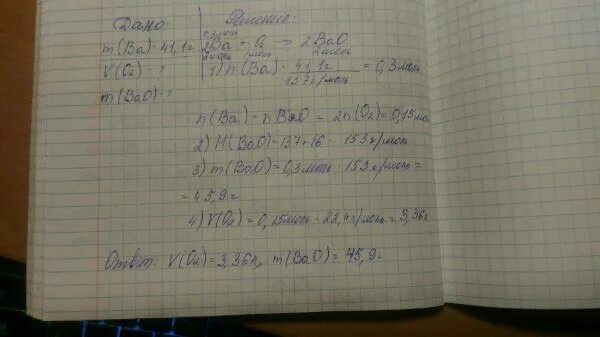 Дано
m(Ba)=41,1г
V(O₂)-?
m(BaO)-?
Решение:
0,3моль
2Ba + O₂ > 2BaO
2моль 1моль 2моль
1) n(Ba) = 41,1г / 137г/моль = 0,3моль
n(Ba) = nBaO = 2n(O₂) = 0,15моль
2) M(BaO) = 137+16 = 153г/моль
3) m(BaO) = 0,3моль · 153г/моль =
= 45,9г
4) V(O₂) = 0,15моль · 22,4л/моль = 3,36л
Ответ: V(O₂) = 3,36л, m(BaO) = 45,9г